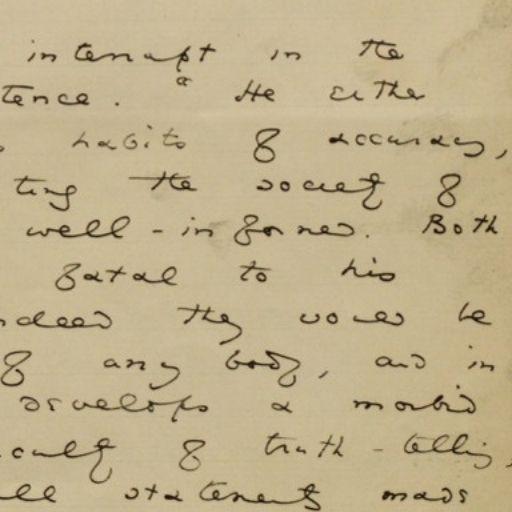 interrupt in the
tence. " He either
habits of accuracy,
ting the society of
well-informed. Both
fatal to his
ndeed they would be
of any body, and in
develops a morbid
culty of truth-telling,
ll statements made